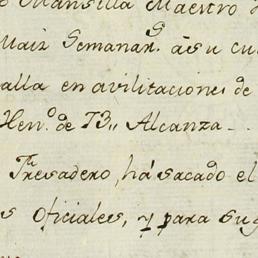 Mansilla Maestro
Maiz Semanar.s á su cu
alla en avilitacione de
Hen.o de 73,, Alcanza
Tresadero, há sacado el
s Oficiales, y para su